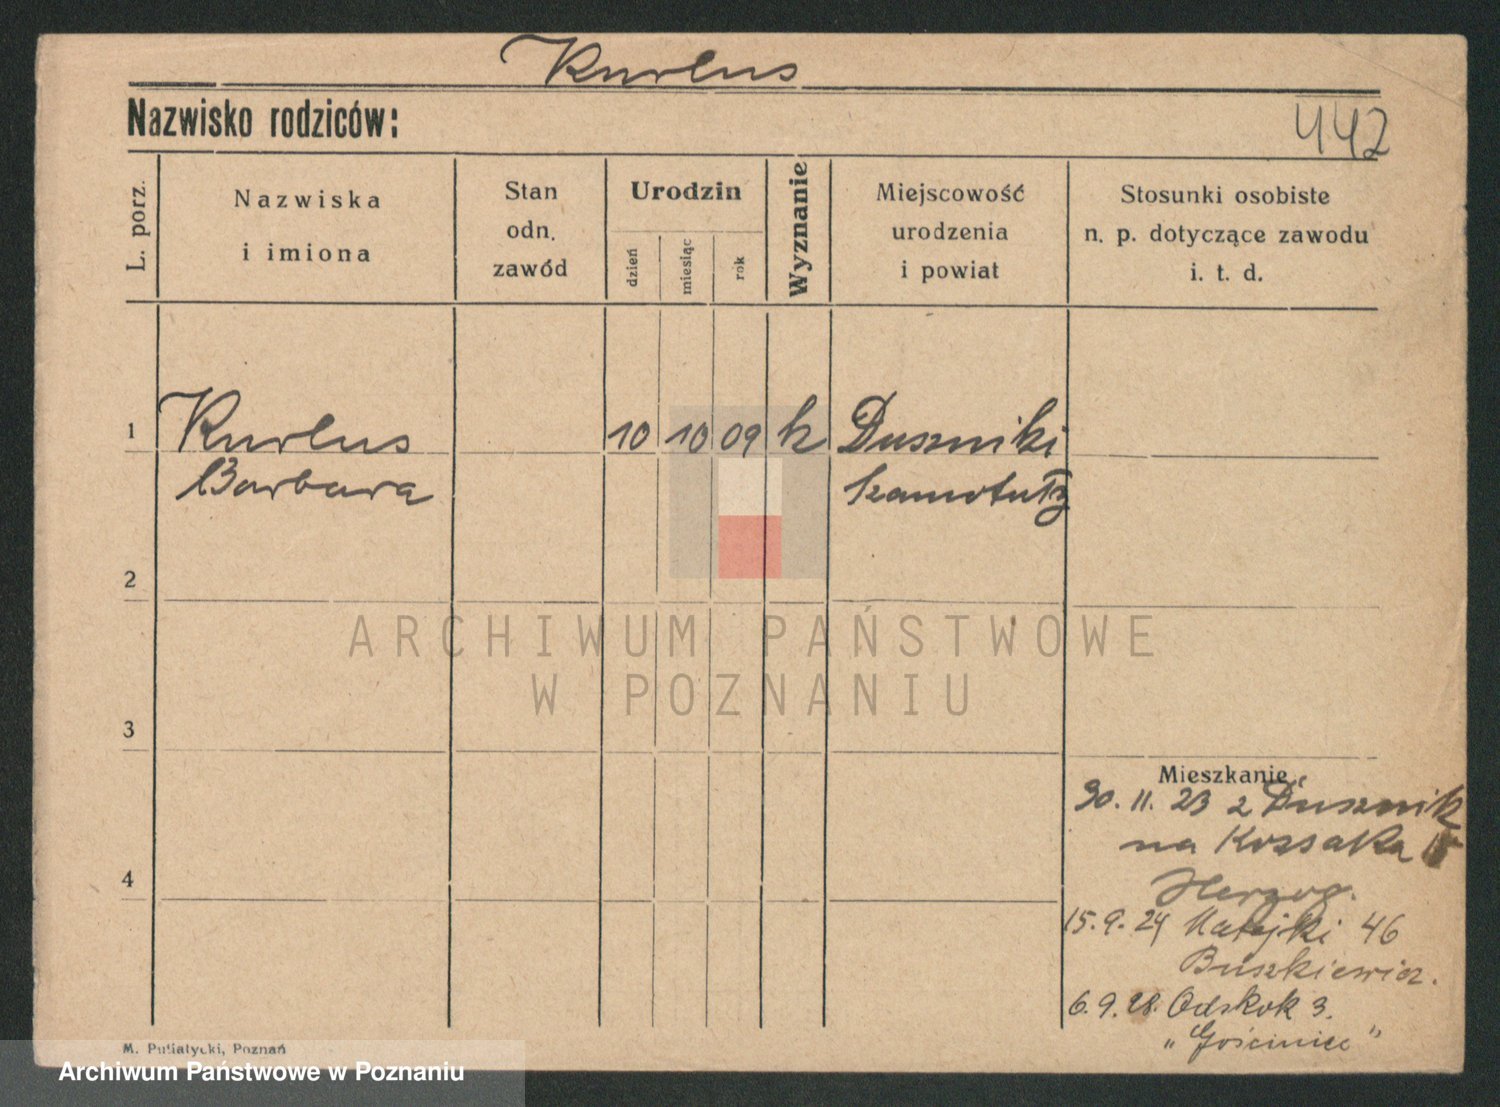 Kurlus
Nazwisko rodziców:
442
L. porz.
Nazwiska
i imiona
Stan
odn.
zawód
Urodzin
dzień
miesiąc
rok
Wyznanie
Miejscowość
urodzenia
i powiat
Stosunki osobiste
n. p. dotyczące zawodu
i. t. d.
1
Kurlus
Barbara
10 10 09 k
Duszniki
szamotuły
2
3
4
Mieszkanie
30. 11. 23 z Dusznik
na Kossaka 15
Herzog.
15. 9. 24 Matejki 46
Buszkiewicz.
6. 9. 28. Odskok 3.
"Gościniec"
M. Putiatycki, Poznań
ARCHIWUM PAŃSTWOWE
W POZNANIU
Archiwum Państwowe w Poznaniu